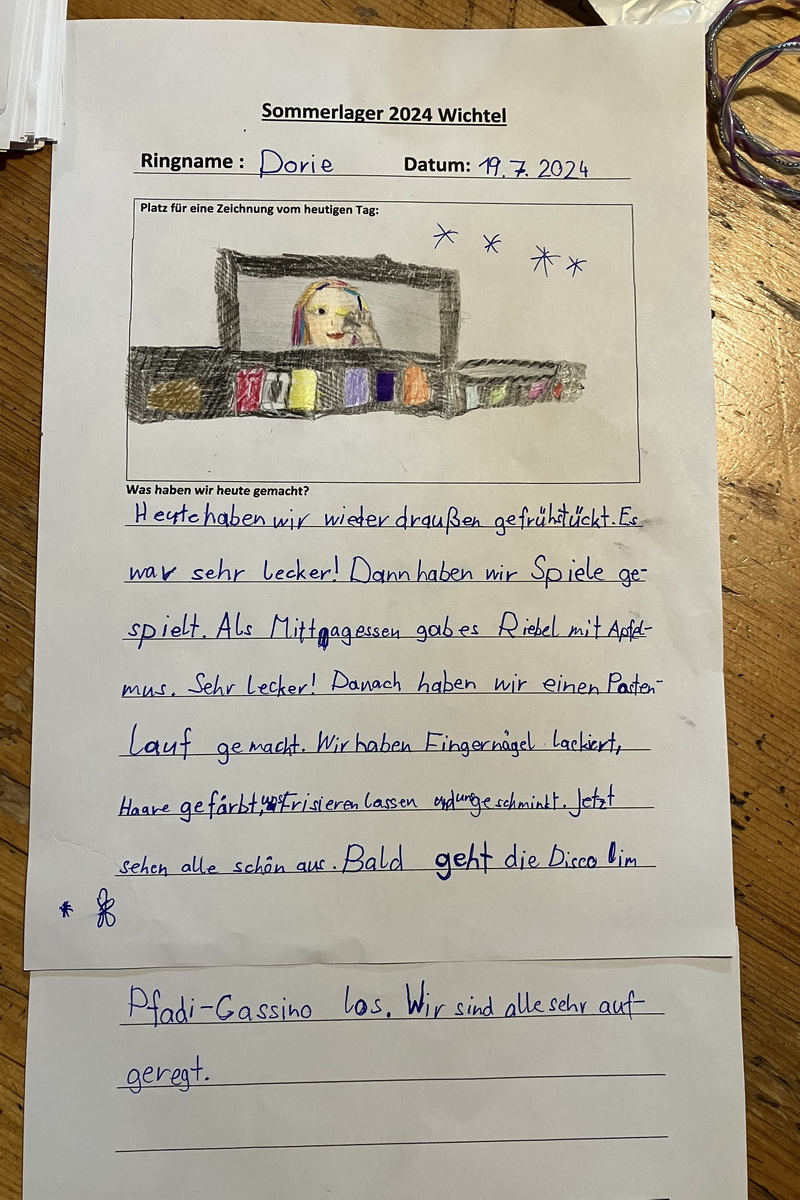 Sommerlager 2024 Wichtel
Ringname : Dorie Datum: 19.7.2024
Platz für eine Zeichnung vom heutigen Tag:
Was haben wir heute gemacht?
Heute haben wir wieder draußen gefrühstückt. Es
war sehr lecker! Dann haben wir Spiele ge-
spielt. Als Mittagessen gab es Riebel mit Apfel-
mus. Sehr lecker! Danach haben wir einen Posten-
lauf gemacht. Wir haben Fingernägel lackiert,
Haare gefärbt, uns Frisieren lassen und uns geschminkt. Jetzt
sehen alle schön aus. Bald geht die Disco im
Pfadi-Cassino los. Wir sind alle sehr auf-
geregt.